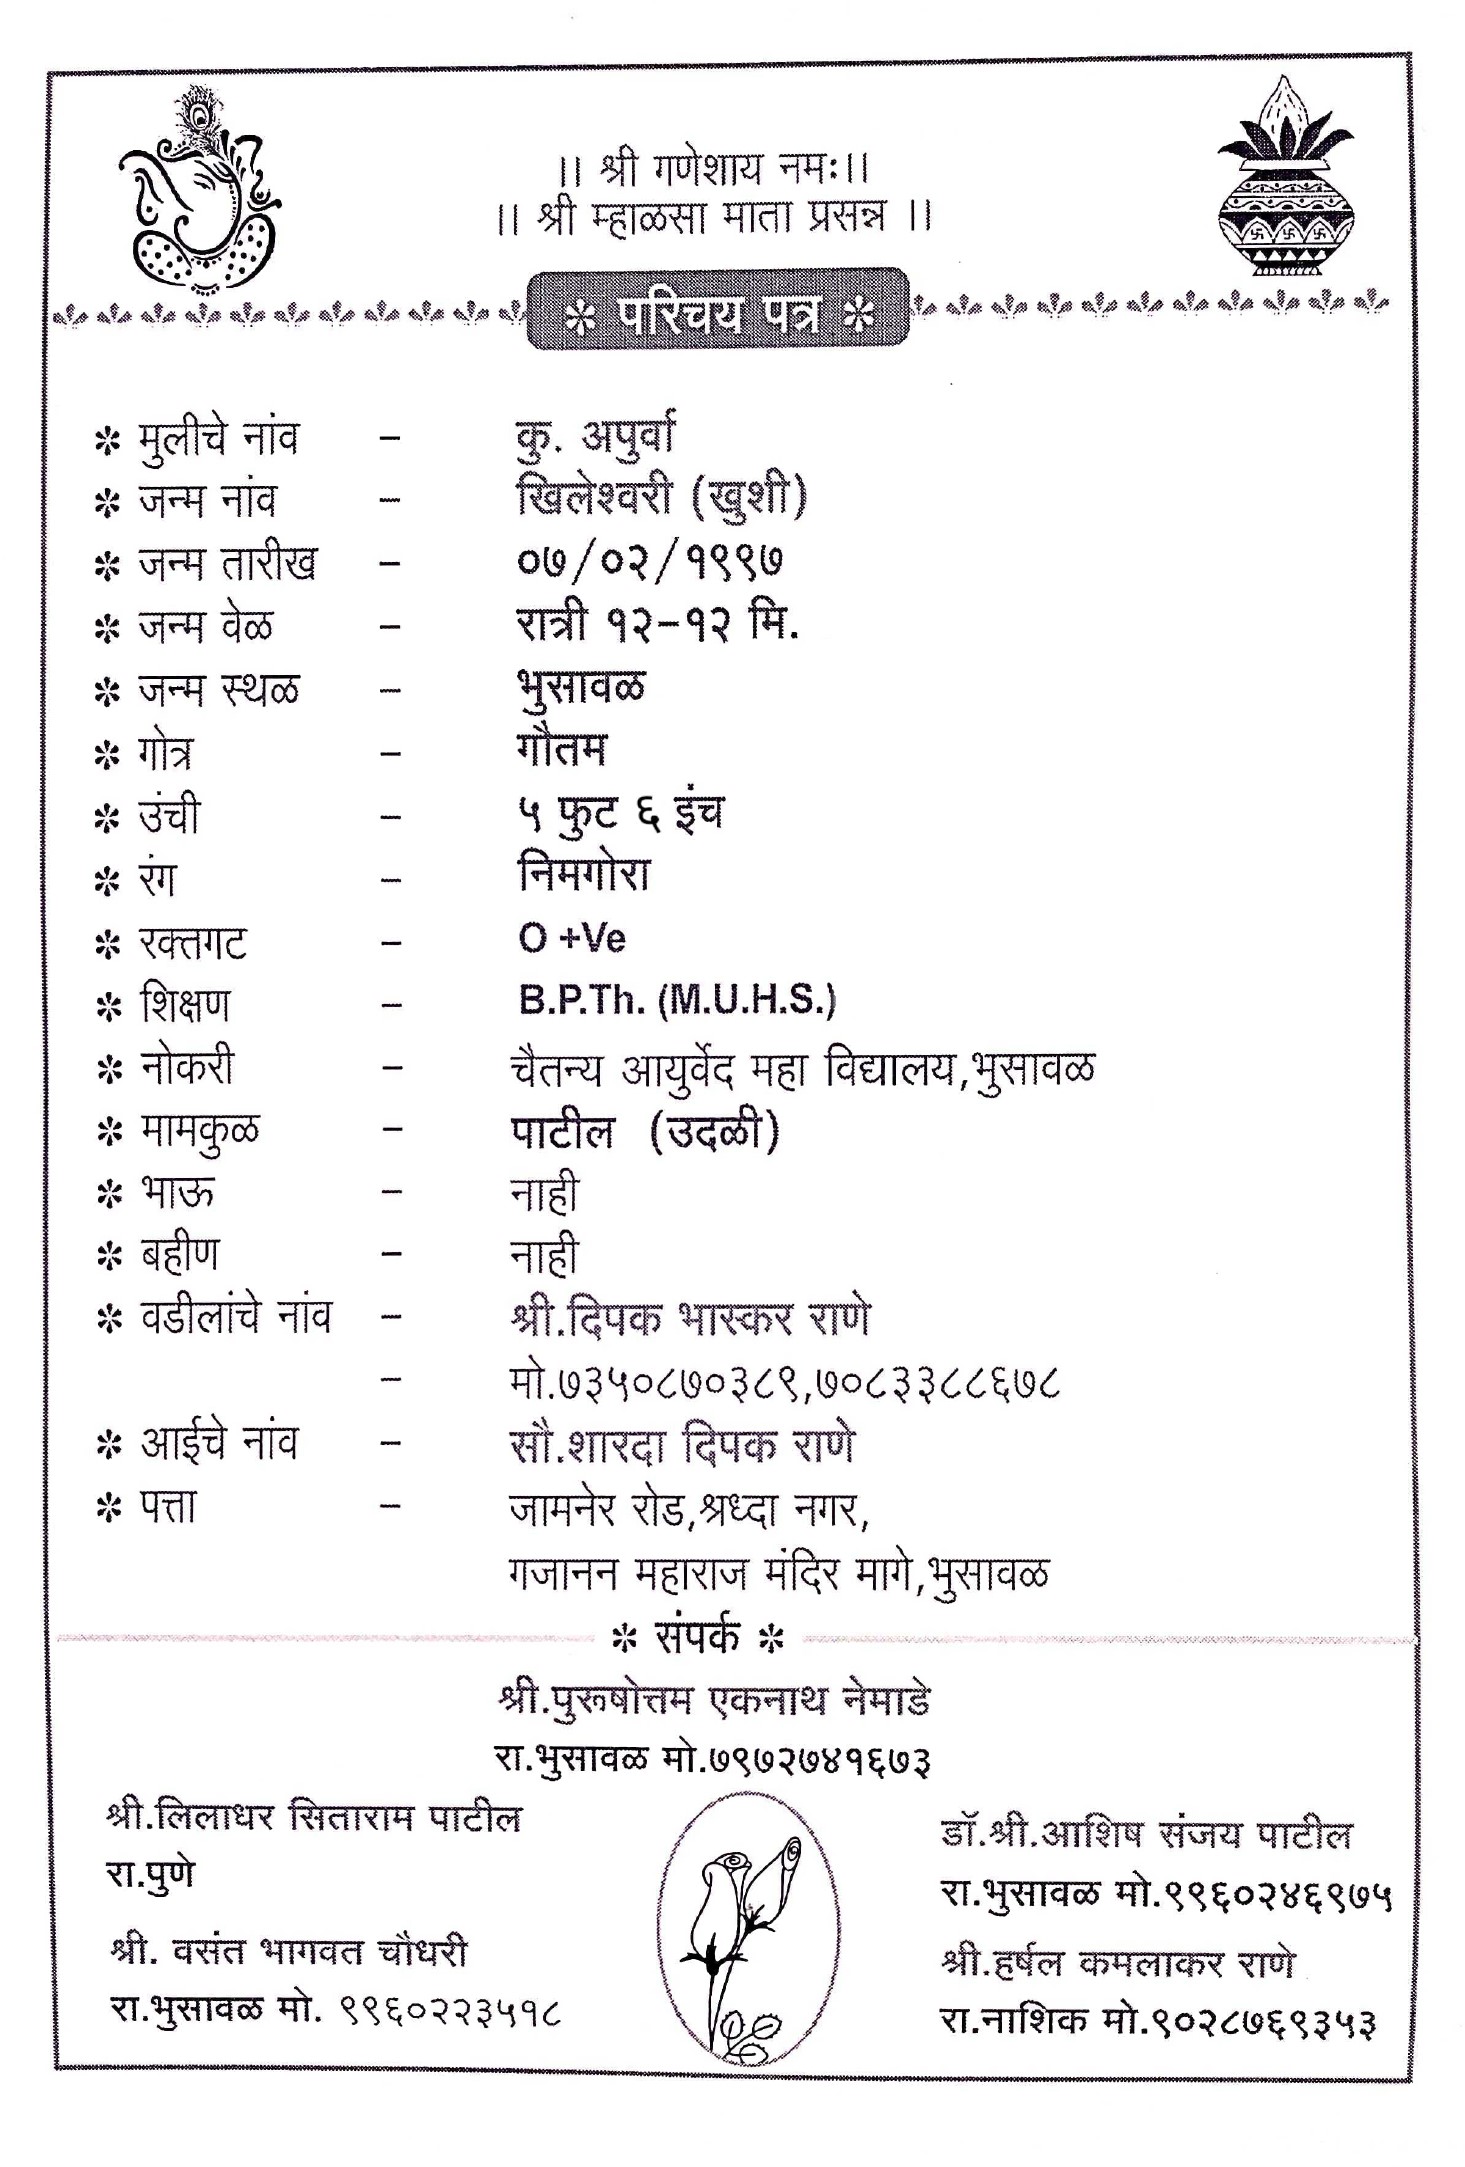 ।। श्री गणेशाय नमः।।
।। श्री म्हाळसा माता प्रसन्न ।।
* परिचय पत्र *
* मुलीचे नांव - कु. अपुर्वा
* जन्म नांव - खिलेश्वरी (खुशी)
* जन्म तारीख - ०७/०२/१९९७
* जन्म वेळ - रात्री १२-१२ मि.
* जन्म स्थळ - भुसावळ
* गोत्र - गौतम
* उंची - ५ फुट ६ इंच
* रंग - निमगोरा
* रक्तगट - O +Ve
* शिक्षण - B.P.Th. (M.U.H.S.)
* नोकरी - चैतन्य आयुर्वेद महा विद्यालय,भुसावळ
* मामकुळ - पाटील (उदळी)
* भाऊ - नाही
* बहीण - नाही
* वडीलांचे नांव - श्री.दिपक भास्कर राणे
- मो.७३५०८७०३८९,७०८३३८८६७८
* आईचे नांव - सौ.शारदा दिपक राणे
* पत्ता - जामनेर रोड,श्रध्दा नगर,
गजानन महाराज मंदिर मागे,भुसावळ
* संपर्क *
श्री.पुरूषोत्तम एकनाथ नेमाडे
रा.भुसावळ मो.७९७२७४१६७३
श्री.लिलाधर सिताराम पाटील
रा.पुणे
श्री. वसंत भागवत चौधरी
रा.भुसावळ मो. ९९६०२२३५१८
डॉ.श्री.आशिष संजय पाटील
रा.भुसावळ मो.९९६०२४६९७५
श्री.हर्षल कमलाकर राणे
रा.नाशिक मो.९०२८७६९३५३